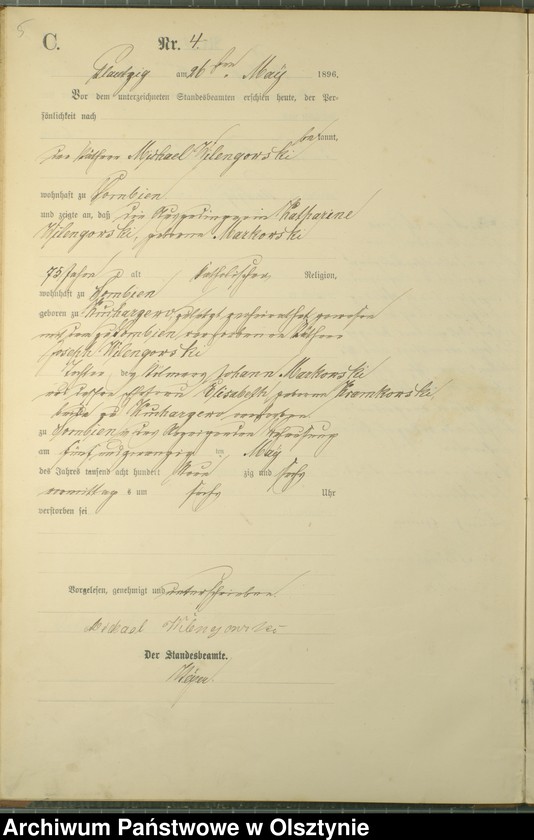 5
C. Nr. 4.
Plautzig am 26 ten Maÿ 1896.
Vor dem unterzeichneten Standesbeamten erschien heute, der Per-
sönlichkeit nach
bekannt,
der Käthner Michael Wilengowski
wohnhaft zu Dombien
und zeigte an, daß die Katharine
Wilengowski, geborne Markowski
75 Jahre alt Katholischer Religion,
wohnhaft zu Dombien
geboren zu Kuchargewo, zuletzt verheirathet gewesen
mit dem zu Dombien verstorbenen Käthner
Joseph Wilengowski
Tochter des Johann Markowski
und dessen Ehefrau Elisabeth, geborne Kramkowski
beide zu Kuchargewo verstorben
zu Dombien in des Anzeigenden Behausung
am fünfundzwanzig ten Maÿ
des Jahres tausend acht hundert Neun zig und sechs
vormittags um sechs Uhr
verstorben sei.
Vorgelesen, genehmigt und unterschrieben
Michael Wilengowski
Der Standesbeamte.
Archiwum Państwowe w Olsztynie